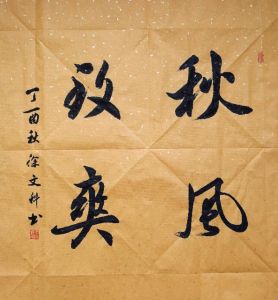 秋风
致爽
丁酉秋徐文科书